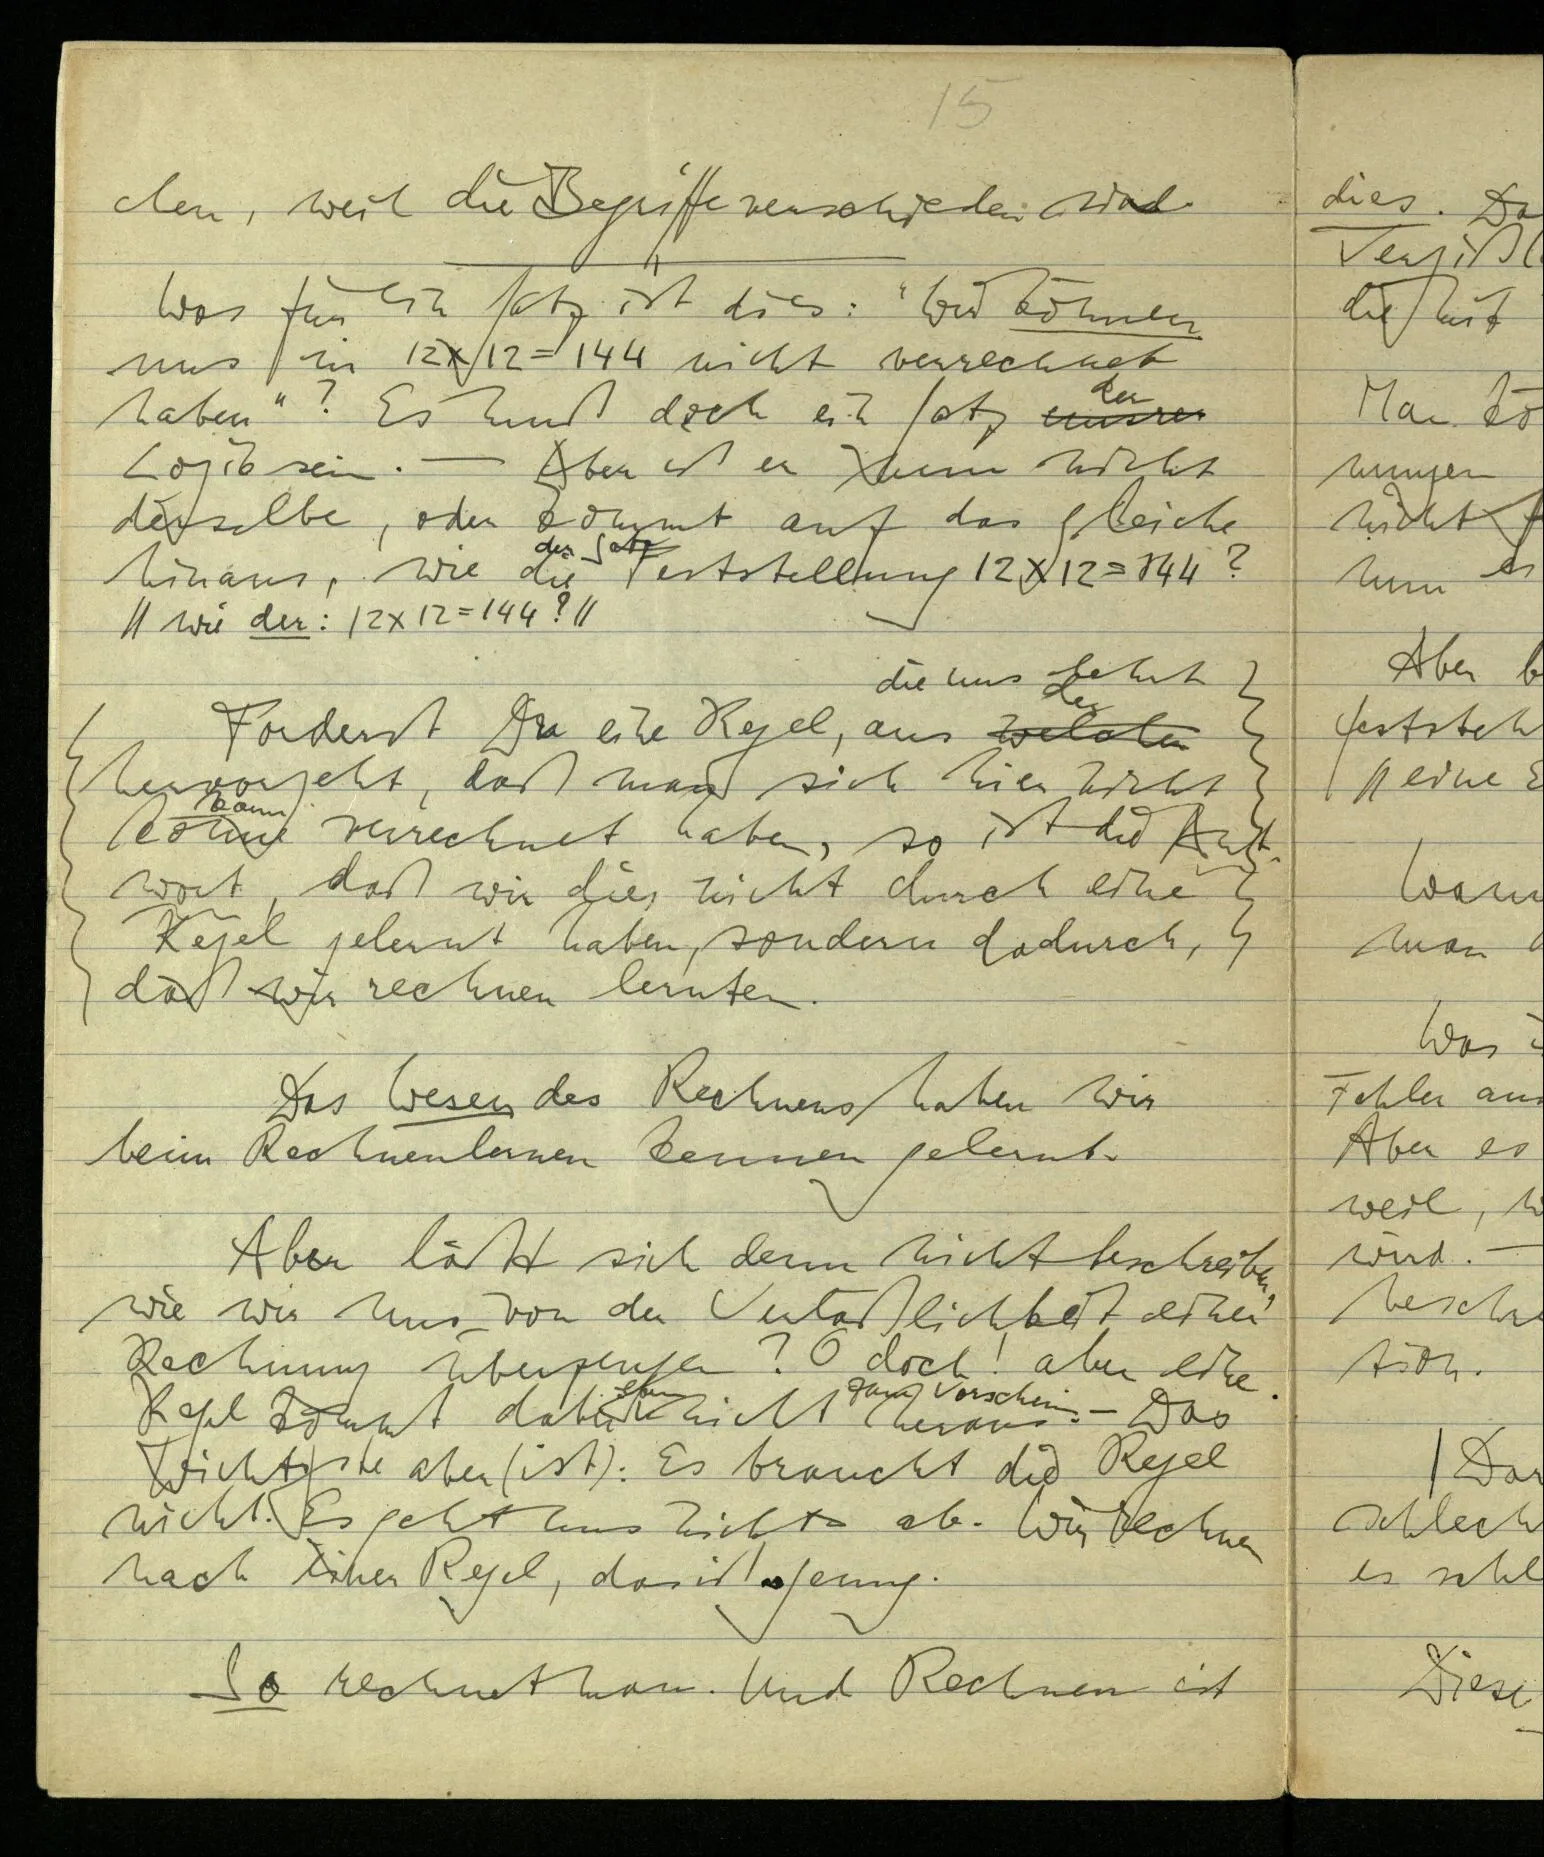 15
chen, weil die Begriffe verschieden sind.
Was für ein Satz ist dies: "Wir können
uns in 12x12=144 nicht verrechnet
haben"? Es muß doch ein Satz unsrer der
Logik sein. — Aber ist er nun nicht
derselbe, oder kommt auf das gleiche
hinaus, wie die der Satz Feststellung 12x12=144?
// wie der: 12x12=144? //
die uns lehrt
Forderst Du eine Regel, aus welcher der
hervorgeht, daß man sich hier nicht
könne kann verrechnet haben, so ist die Ant-
wort, daß wir dies nicht durch eine
Regel gelernt haben, sondern dadurch,
daß wir rechnen lernten.
Das Wesen des Rechnens haben wir
beim Rechnenlernen kennen gelernt.
Aber läßt sich denn nicht beschreiben,
wie wir uns von der Verläßlichkeit einer
Rechnung überzeugen? O doch! aber eine
Regel kommt dabei eben nicht heraus zum Vorschein. – Das
Wichtigste aber (ist): Es braucht die Regel
nicht. Es geht uns nichts ab. Wir rechnen
nach einer Regel, das ist genug.
So rechnet man. Und Rechnen ist
dies. Da
die
Man kö
nicht
nun es
Aber b
feststeh
// eine E
Wann
man
Was i
Fehler aus
Aber es
weil, w
wird. —
beschre
tion.
Dar
schlech
es schl
Diese